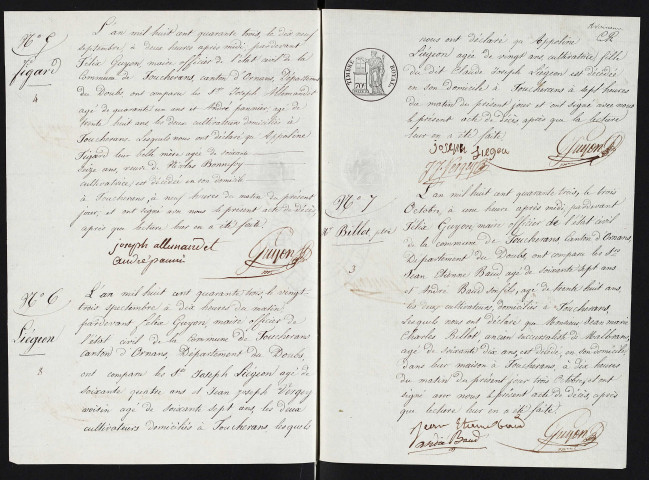 N° 5
Figard
L'an mil huit cent quarante trois, le dix neuf
septembre à deux heures après midi, pardevant
Félix Guyon, maire officier de l'état civil de la
Commune de Foucherans, canton d'Ornans, Département
du Doubs ont comparu les Srs Joseph Allemandet
agé de quarante un ans et André paunier agé de
trente huit ans les deux cultivateurs domiciliés à
Foucherans. Lesquels nous ont déclaré qu'Appoline
Figard leur belle mère agée de soixante
Seize ans, veuve de Nicolas
cultivatrice, est décédée en son domicile
à Foucherans, à neuf heures du matin du présent
jour, et ont signé avec nous le présent acte de décès
après que lecture leur en a été faite.
joseph allemandet
andré
Guyon
N° 6
Liégeon
L'an mil huit cent quarante trois, le vingt-
trois septembre à dix heures du matin
pardevant, Félix Guyon, maire officier de
l'état civil de la commune de Foucherans
canton d'Ornans, Département du Doubs,
ont comparu les Srs Joseph Liégeon agé de
soixante quatre ans et Jean Joseph Vergey
voisin agé de soixante sept ans les deux
cultivateurs domiciliés à Foucherans, lesquels
TIMBRE ROYAL
nous ont déclaré qu'Appoline
Liégeon agée de vingt ans cultivatrice, fille
du dit Claude Joseph Liégeon est décédée
en son domicile à Foucherans à sept heures
du matin du présent jour et ont signé avec nous
le présent acte de décès après que la lecture
leur en a été faite.
Joseph Liegeon
Guyon
N° 7
Mr Billot, prêtre
L'an mil huit cent quarante trois, le trois
Octobre, à heure après midi, pardevant
Félix Guyon maire officier de l'état civil
de la commune de Foucherans Canton d'Ornans,
Département du Doubs, ont comparu les Srs
Jean Etienne Baud agé de soixante sept ans
et André Baud son fils, agé de trente huit ans,
les deux cultivateurs, domiciliés à Foucherans.
Lesquels nous ont déclaré que Monsieur Jean marie
Charles Billot, ancien de
agé de soixante dix ans, est décédé, en son domicile,
dans leur maison à Foucherans, à dix heures
du matin du présent jour trois Octobre, et ont
signé avec nous le présent acte de décès après
que lecture leur en a été faite.
jean Etienne Baud
andré Baud
Guyon